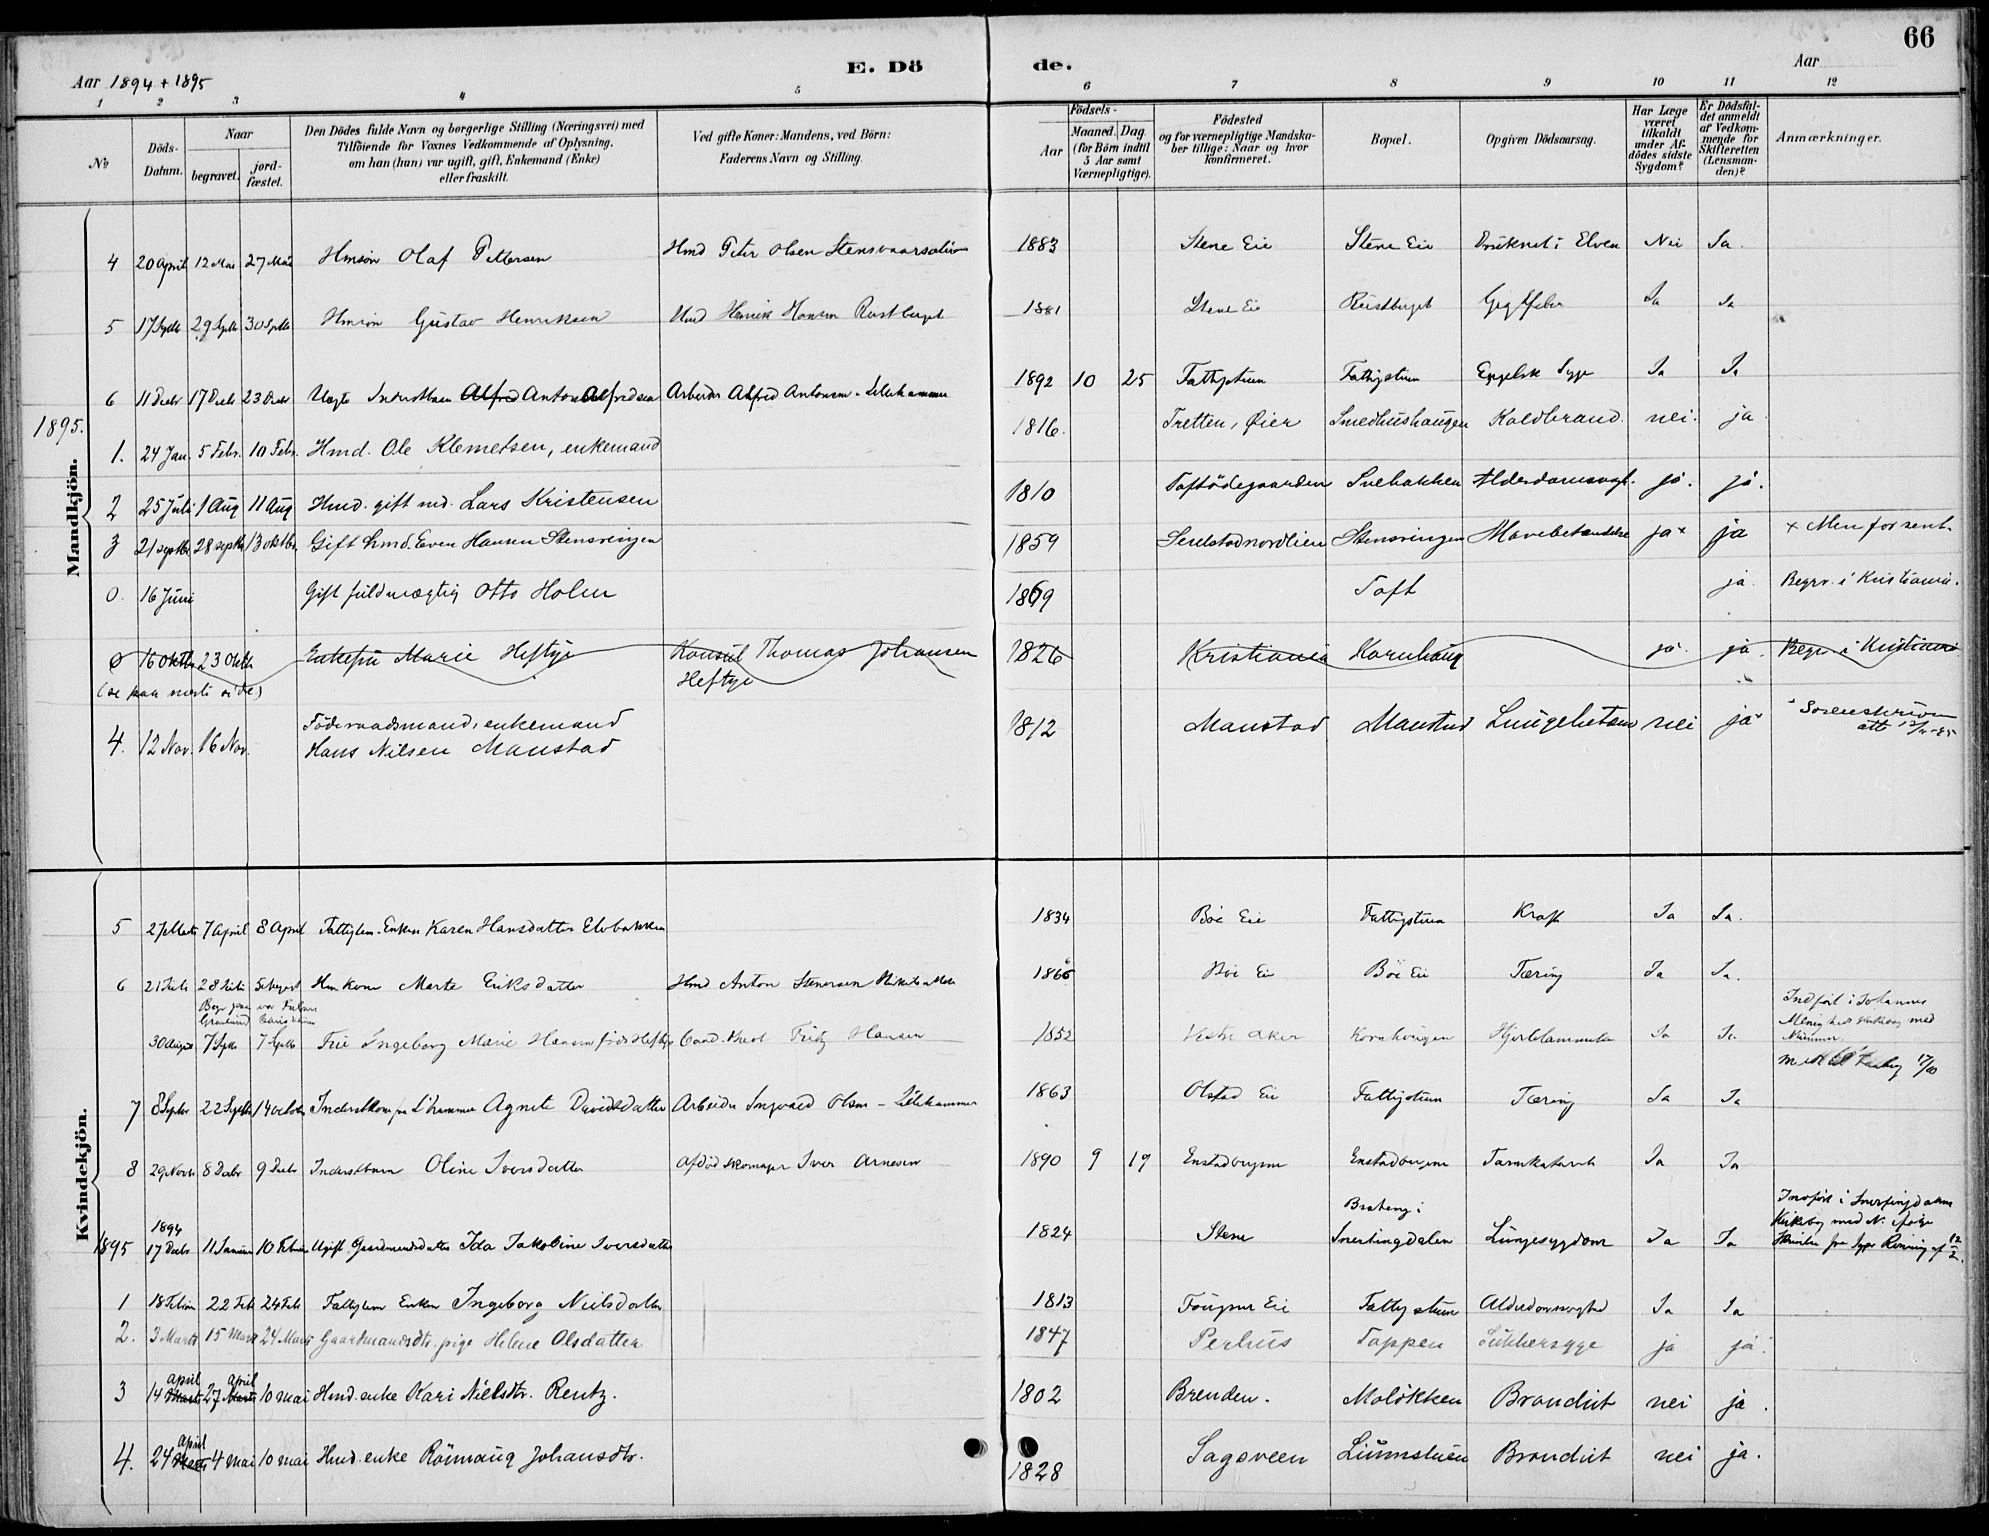 66
Aar 1894 + 1895
E. Dö de.
Aar
1 2 3 4 5 6 7 8 9 10 11 12
No
Döds-Datum.
Naar
begravet.
jord-fæstet.
Den Dödes fulde Navn og borgerlige Stilling (Næringsvei) med
Tilföiende for Voxnes Vedkommende af Oplysning,
om han (hun) var ugift, gift, Enkemand (Enke)
eller fraskilt.
Ved gifte Koner: Mandens, ved Börn:
Faderens Navn og Stilling.
Födsels-
Aar
Maaned. Dag
(for Börn indtil
5 Aar samt
Værnepligtige).
Födested
og for værnepligtige Mandska-
ber tillige: Naar og hvor
konfirmeret.
Bopæl.
Opgiven Dödsaarsag.
Har Læge
været
tilkaldt
under Af-
dödes sidste
Sygdom?
Er Dödsfal-
det anmeldt
af Vedkom-
mende for
Skifteretten
(Lensman-
den)?
Anmærkninger.
Mandkjön.
4 20 April 12 Mai 27 Mai Hmsön Olaf Pettersen Hmd Peter Olsen 1883 Stene Eie Stene Eie Druknet i Elven Nei Ja.
5 17 Septb 29 Septb 30 Septb Hmsön Gustav Henriksen Hmd Henrik Hansen Rustberget 1881 Stene Eie Rustberget Ja Ja
6 11 Decbr 17 Decb 23 Decbr Alfred Anton Alfredsen Arbeider Alfred Antonsen - Lillehammer 1892 10 25 Fattigstuen Fattigstuen Engelsk Syge Ja Ja
1895.
1. 24 Jan. 5 Febr. 10 Febr. Hmd. Ole Klemetsen, enkemand 1816. Tretten, Öier Smedhushaugen Koldbrand nei. ja
2 25 Juli 1 Aug 11 Aug Hmd. gift md. Lars Kristensen 1810 Toftödegaarden Snebakken ja. ja.
3 21 septbr 28 septbr 13 oktbr. Gift hmd. Even Hansen Stensvingen 1859 Stensvingen Mavebetændelse ja x ja x Men for sent.
0. 16 Juni Gift fuldmægtig Otto Holm 1869 Toft ja. Begr. i Kristiania.
0 16 Oktbr 23 Oktb Enkefru Marie Heftye Konsul Thomas Johansen 1826 Kristiania Kornhaug ja. ja. Begr. i Kristiania
(se paa næste side) Heftye
4. 12 Nov. 16 Nov. Föderaadsmand, enkemand
Hans Nilsen Maustad 1812 Maustad Maustad nei ja
Kvindekjön.
5 27 Marts 7 April 8 April Fattiglem. Enken Karen Hansdatter Elvbakken 1834 Böe Eie Fattigstuen Kræft Ja Ja.
6 21 Juli 28 Juli Hmkone Marte Eriksdatter Hmd Anton Stenersen 1866 Böe Eie Böe Eie Tæring Ja Ja.
30 August 7 Septb 7 Septb Frue Ingeborg Marie Hansen född Heftye Cand. theol Fritz Hansen 1852 Vestre Aker Kornhaugen Hjertelammelse Ja Ja
Indfört i Johannes
Menigheds Kirkebog med
Nummer.
7 8 Septbr 22 Septb 14 October Agnete Davidsdatter Arbeider Ingvald Olsen - Lillehammer 1863 Olstad Eie Fattigstuen Tæring Ja Ja
8 29 Novbr 8 Decbr 9 Decbr Inderstbarn Oline Iversdatter Afdöd Skomager Iver Arnesen 1890 9 19 Tarmkatarrh Ja Ja
1895
1894
17 Decbr 11 Januar 10 Februar Ugift Gaardmandsdatter Ida Jakobine Iversdatter 1824 Stene Bratteng i
Snertingdalen Lungesygdom Ja Ja
Indfört i Snertingdalens
Kirkebog med N. ifölge
1 18 Febr 22 Feb 24 Feb Fattiglem Enken Ingeborg Nielsdatter 1813 Fougner Eie Fattigstuen Ja Ja
2. 3 Marts 15 Marts 24 Marts Gaardmandsdtr. pige Helene Olsdatter 1847 Perhus Toppen Sukkersyge ja ja.
3 14 Marts April 27 Marts April 10 mai Hmd. enke Kari Nielsdtr. Rentz. 1802 Brenden. Molökken nei ja.
4. 24 Marts April 4 mai 10 mai Hmd. enke Römaug Johansdtr. 1828 Sagsveen nei ja.